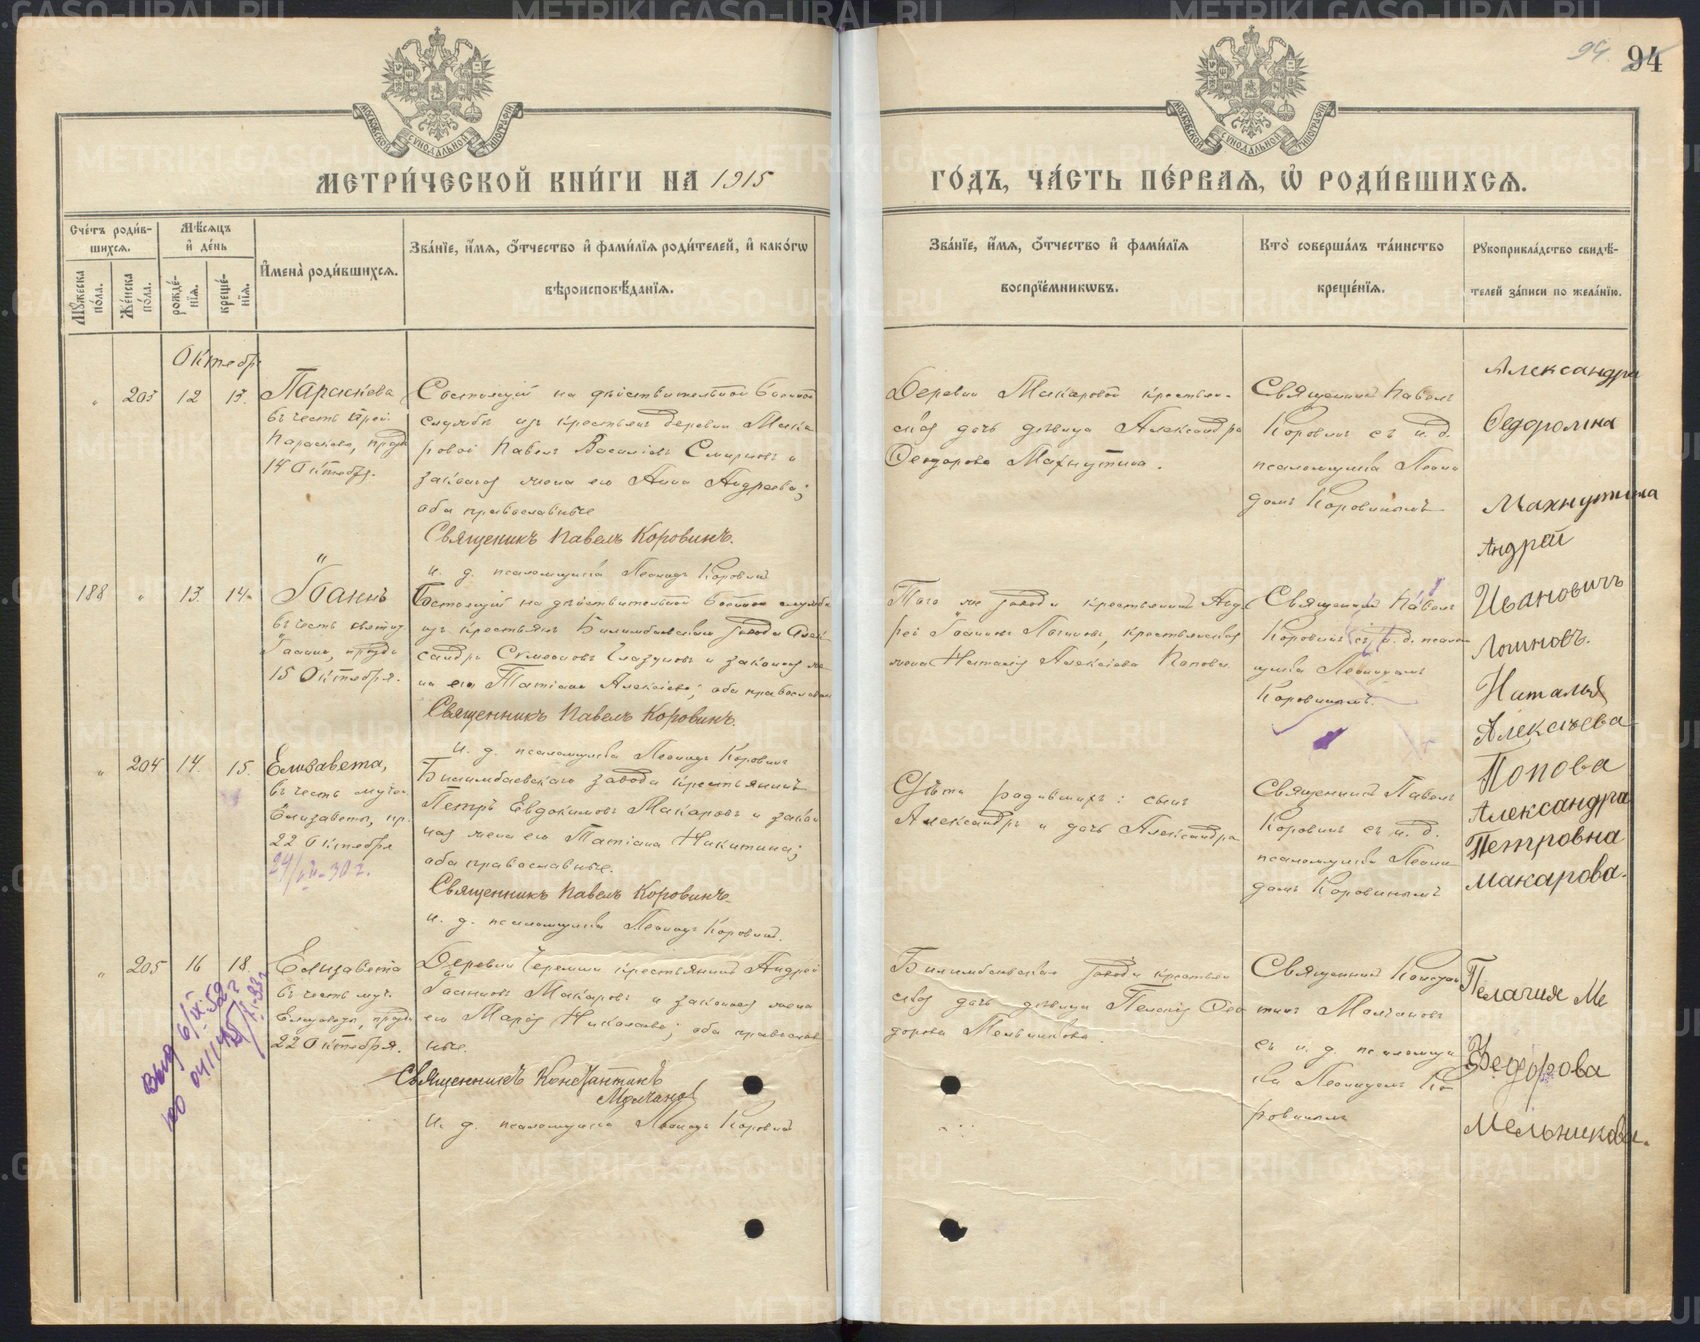 94. 94
МОСКОВСКОЙ СѴНОДАЛЬНОЙ ТИПОГРАФІИ
МОСКОВСКОЙ СѴНОДАЛЬНОЙ ТИПОГРАФІИ
МЕТРИ́ЧЕСКОЙ КНИ́ГИ НА 1915
ГО́ДЪ, ЧА́СТЬ ПЕ́РВАѦ, Ѡ҆ РОДИ́ВШИХСѦ.
Сче́тъ роди́в-
шихсѧ.
Мꙋ́жеска
по́ла.
Же́нска
по́ла.
Мѣ́сѧцъ
и҆ де́нь
рожде́-
нїѧ.
креще́-
нїѧ.
И҆мена̀ роди́вшихсѧ.
Зва́нїе, и҆́мѧ, ѻ҆́тчество и҆ фами́лїѧ роди́телей, и҆ како́гѡ
вѣроисповѣ́данїѧ.
Зва́нїе, и҆́мѧ, ѻ҆́тчество и҆ фами́лїѧ
воспрїе́мникѡвъ.
Кто̀ соверша́лъ та́инство
креще́нїѧ.
Рꙋкоприкла́дство свидѣ́-
телей за́писи по жела́нїю.
Октябрь
" 203 12 13.
Параскева
въ честь преп.
Параскевы, празд.
14 Октября.
Состоящій на дѣйствительной военной
службѣ изъ крестьянъ деревни Мака
ровой Павелъ Василіевъ Смирновъ и
законная жена его Анна Андреева;
оба православные
Священикъ Павелъ Коровинъ.
и. д. псаломщика Леонидъ Коровинъ
Деревни Макаровой крестьян-
ская дочь дѣвица Александра
Феодорова Махнутина.
Священникъ Павелъ
Коровинъ съ и. д.
псаломщика Леони
домъ Коровинымъ
Александра
Федоровна
Махнутина
188 " 13. 14.
Іоаннъ
въ честь святаго
Іоанна, празд.
15 Октября.
Состоящій на дѣйствительной военной службѣ
изъ крестьянъ Билимбаевскаго завода Алек
сандръ Симеоновъ Глазуновъ и законная же
на его Татіана Алексіева; оба православные
Священникъ Павелъ Коровинъ.
и. д. псаломщика Леонидъ Коровинъ
Того же завода крестьянинъ Анд
рей Іоанновъ Логиновъ, крестьянская
жена Наталія Алексіева Попова
Священникъ Павелъ
Коровинъ съ и. д. псалом
щика Леонидомъ
Коровинымъ.
Андрей
Ивановичъ
Логиновъ.
Наталья
Алексѣева
Попова
" 204 14. 15.
Елизавета,
въ честь мучен.
Елизаветы, пр.
22 Октября
Билимбаевскаго завода крестьянинъ
Петръ Евдокимовъ Макаровъ и закон
ная жена его Татіана Никитина;
оба православные.
Священникъ Павелъ Коровинъ
и. д. псаломщика Леонидъ Коровинъ.
Дѣти родившихъ: сынъ
Александръ и дочь Александра
Священникъ Павелъ
Коровинъ съ и. д.
псаломщика Леони
домъ Коровинымъ
Александра
Петровна
Макарова.
" 205 16 18.
Елизавета
въ честь муч.
Елизаветы, празд.
22 Октября.
Деревни Черемши крестьянинъ Андрей
Іоанновъ Макаровъ и законная жена
его Марія Николаева; оба православ
ные.
Священникъ Константинъ
Молчановъ
и. д. псаломщика Леонидъ Коровинъ
Билимбаевскаго завода крестьян
ская дочь дѣвица Пелагія Фео
дорова Мельникова.
Священникъ Конста
нтинъ Молчановъ
съ и. д. псаломщи
ка Леонидомъ Ко
ровинымъ
Пелагия Ме
Федорова
Мельникова.
METRIKI.GASO-URAL.RU